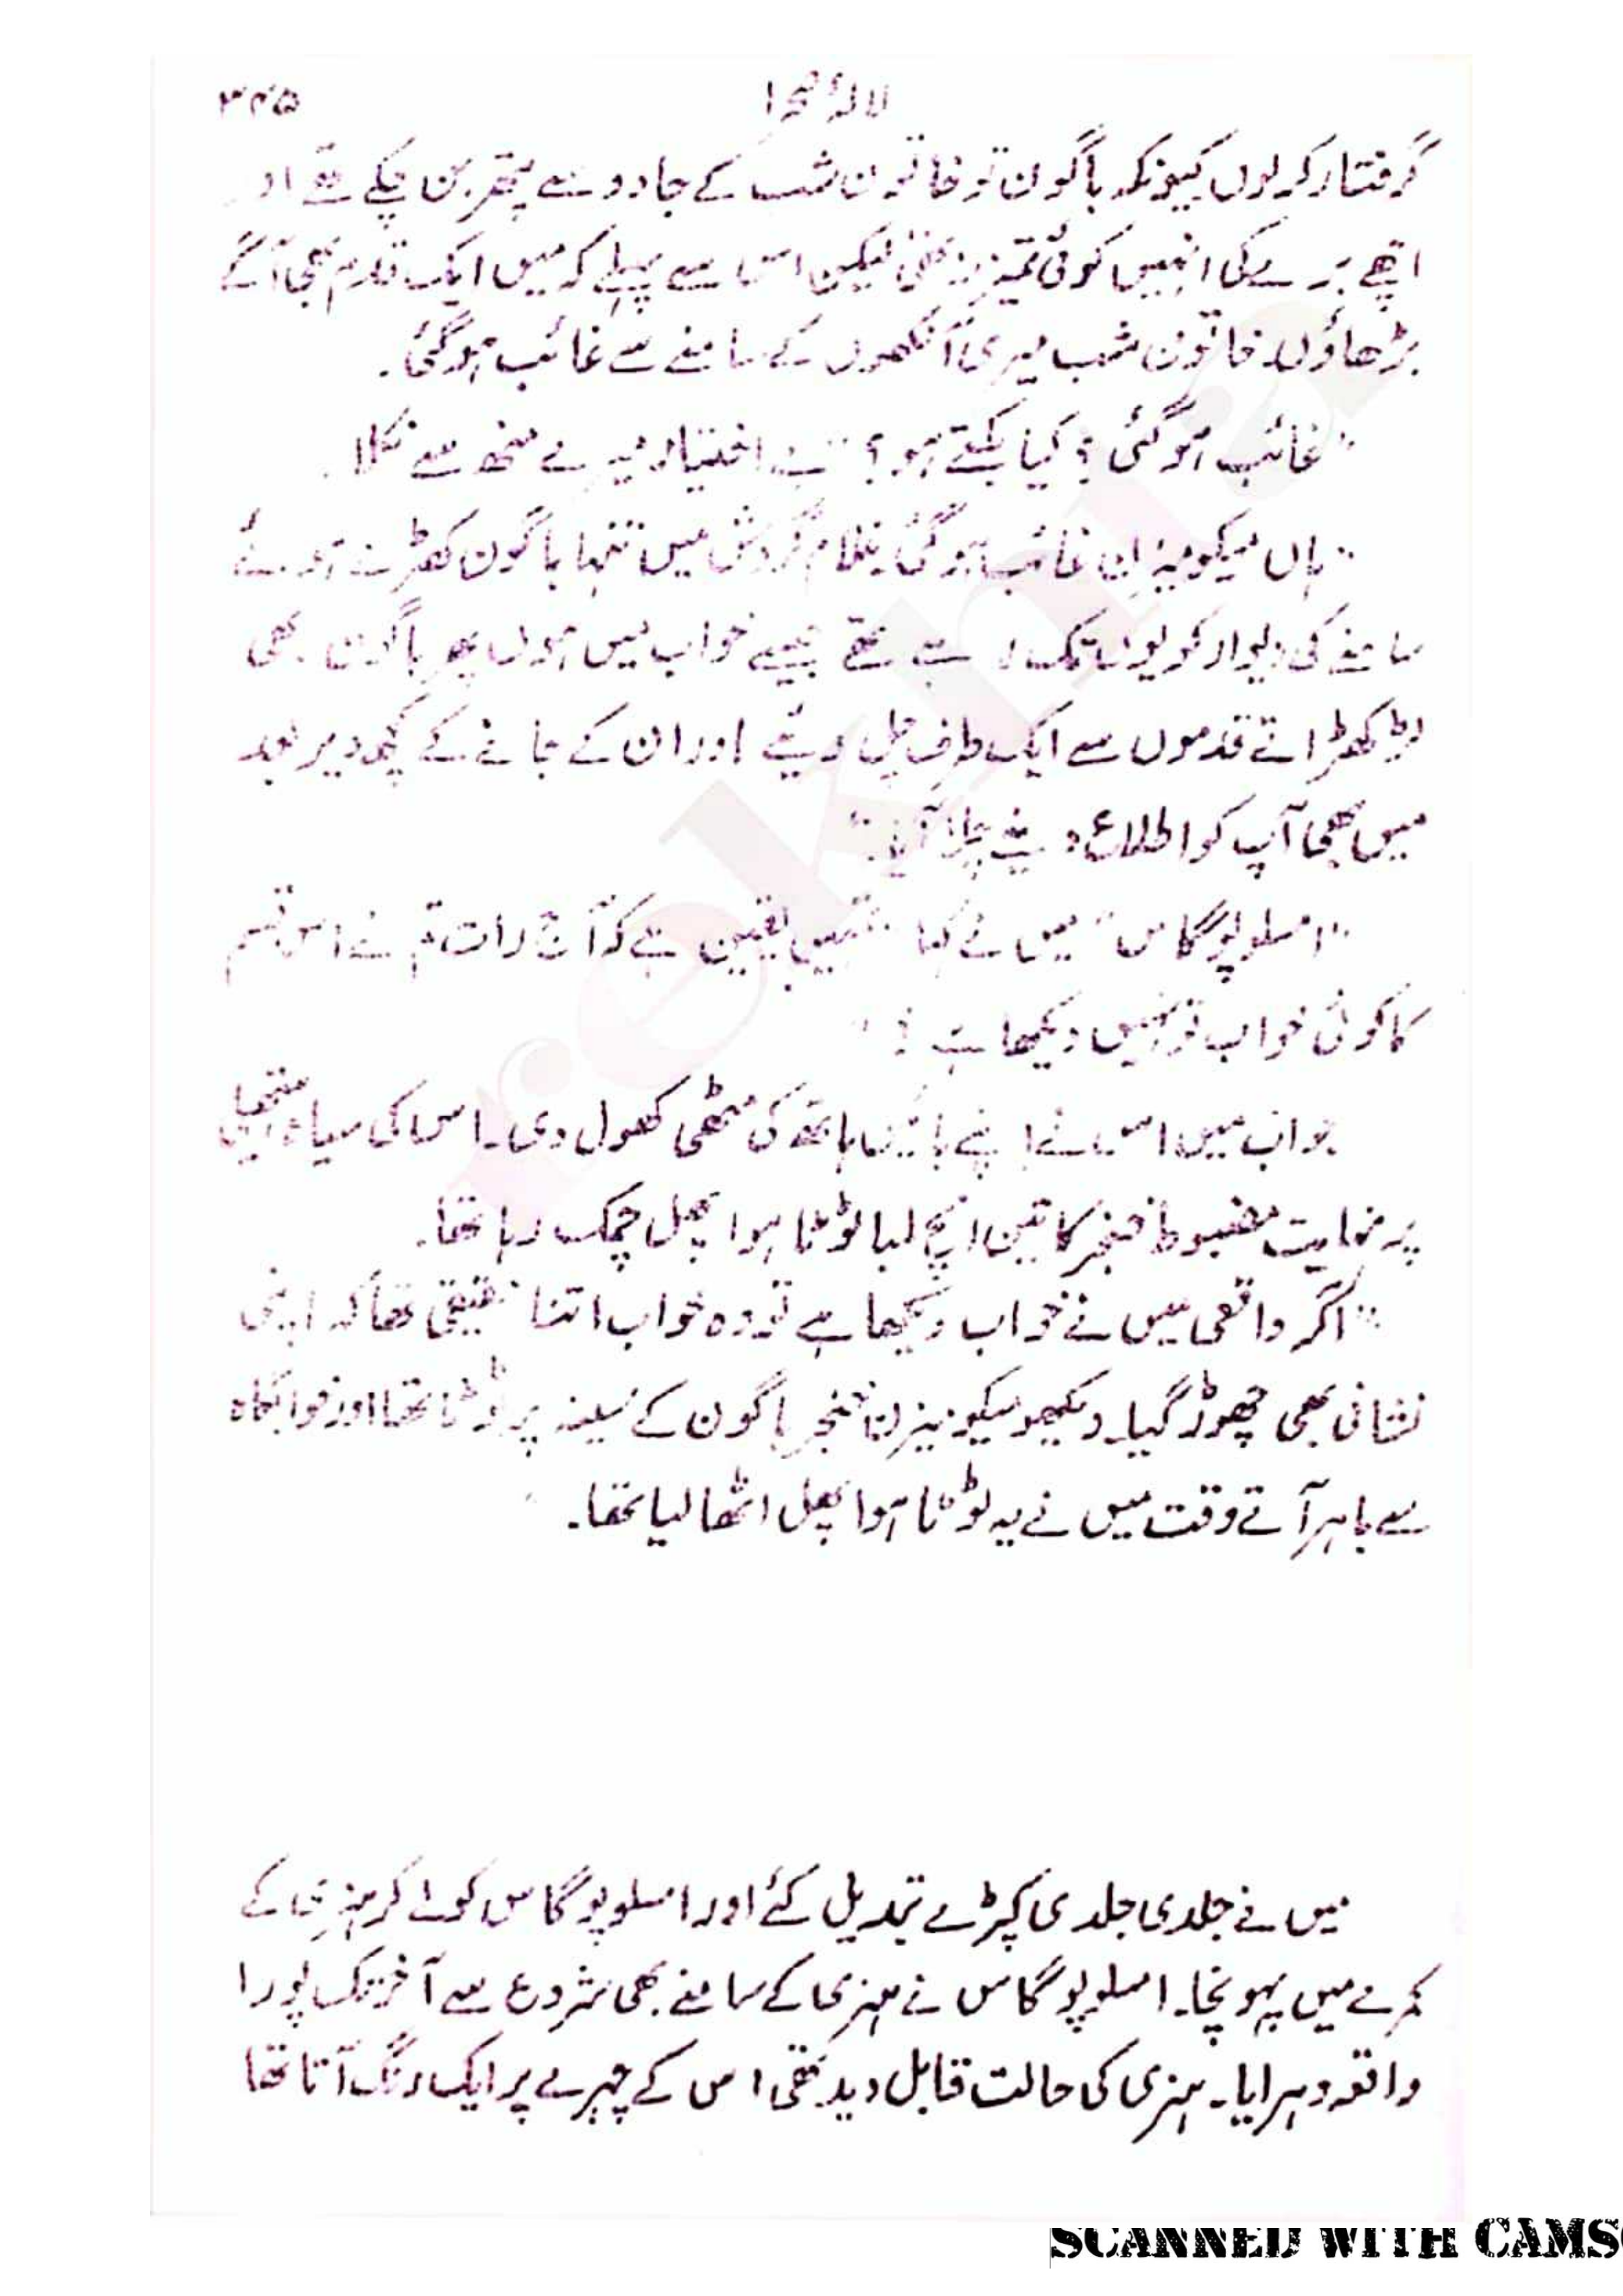 لالۂ صحرا ۳۴۵
گرفتار کر لوں کیونکہ باگون تو خاتون شب کے جادو سے پتھر بن چکے تھے اور
اچھے برے کی انہیں کوئی تمیز نہ تھی لیکن اس سے پہلے کہ میں ایک قدم بھی آگے
بڑھاؤں خاتون شب میری آنکھوں کے سامنے سے غائب ہو گئی۔
"غائب ہو گئی؟ کیا بکتے ہو؟" بے اختیار میرے منھ سے نکلا۔
"ہاں میکومیزان غائب ہو گئی غلام گردش میں تنہا باگون کھڑے ہوئے
سامنے کی دیوار کو یوں تک رہے تھے جیسے خواب میں ہوں پھر باگون بھی
لڑکھڑاتے قدموں سے ایک طرف چل دیئے اور ان کے جانے کے کچھ دیر بعد
میں بھی آپ کو اطلاع دینے چلا آیا۔"
"امسلوپوگاس" میں نے کہا "تمہیں یقین ہے کہ آج رات تم نے اس قسم
کا کوئی خواب تو نہیں دیکھا ہے؟"
جواب میں اس نے اپنے بائیں ہاتھ کی مٹھی کھول دی۔ اس کی سیاہ ہتھیلی
پر نہایت مضبوط خنجر کا تین انچ لمبا ٹوٹا ہوا پھل چمک رہا تھا۔
"اگر واقعی میں نے خواب دیکھا ہے تو وہ خواب اتنا حقیقی تھا کہ اپنی
نشانی بھی چھوڑ گیا۔ دیکھو میکومیزان خنجر باگون کے سینہ پر ٹوٹا تھا اور خوابگاہ
سے باہر آتے وقت میں نے یہ ٹوٹا ہوا پھل اٹھا لیا تھا۔
میں نے جلدی جلدی کپڑے تبدیل کئے اور امسلوپوگاس کو لے کر ہنری کے
کمرے میں پہونچا۔ امسلوپوگاس نے ہنری کے سامنے بھی شروع سے آخر تک پورا
واقعہ دہرایا۔ ہنری کی حالت قابل دید تھی اس کے چہرے پر ایک رنگ آتا تھا
rekhta
SCANNED WITH CAMS